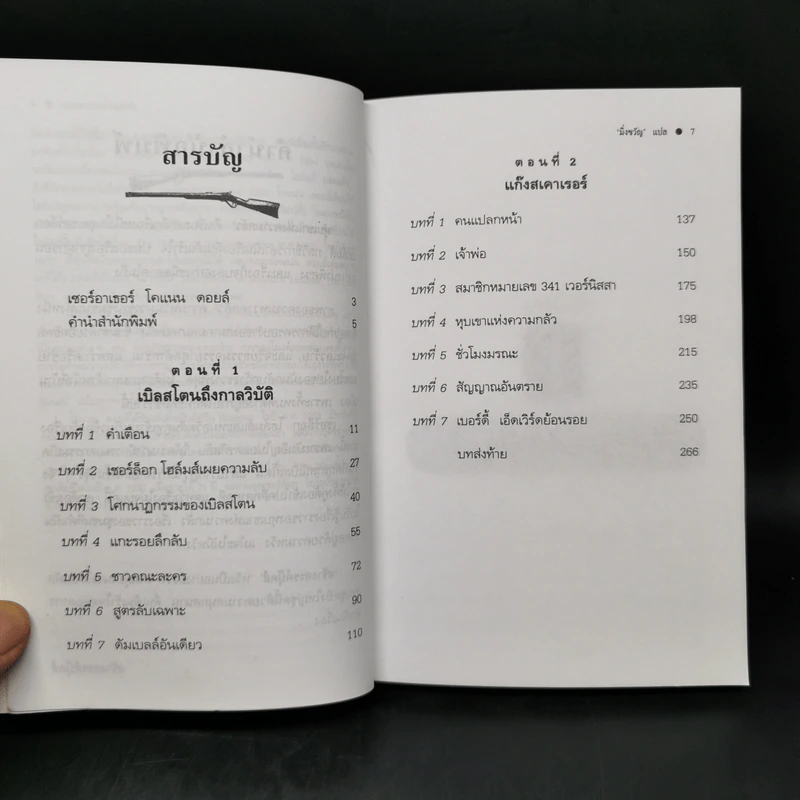 สารบัญ
เซอร์อาเธอร์ โคแนน ดอยล์ 3
คำนำสำนักพิมพ์ 5
ตอนที่ 1
เบิลสโตนถึงกาลวิบัติ
บทที่ 1 คำเตือน 11
บทที่ 2 เชอร์ล็อก โฮล์มส์เผยความลับ 27
บทที่ 3 โศกนาฏกรรมของเบิลสโตน 40
บทที่ 4 แกะรอยลึกลับ 55
บทที่ 5 ชาวคณะละคร 72
บทที่ 6 สูตรลับเฉพาะ 90
บทที่ 7 ดัมเบลล์อันเดียว 110
"มิ่งขวัญ" แปล ● 7
ตอนที่ 2
แก๊งสเคาเรอร์
บทที่ 1 คนแปลกหน้า 137
บทที่ 2 เจ้าพ่อ 150
บทที่ 3 สมาชิกหมายเลข 341 เวอร์นิสสา 175
บทที่ 4 หุบเขาแห่งความกลัว 198
บทที่ 5 ชั่วโมงมรณะ 215
บทที่ 6 สัญญาณอันตราย 235
บทที่ 7 เบอร์ดี้ เอ็ดเวิร์ดย้อนรอย 250
บทส่งท้าย 266